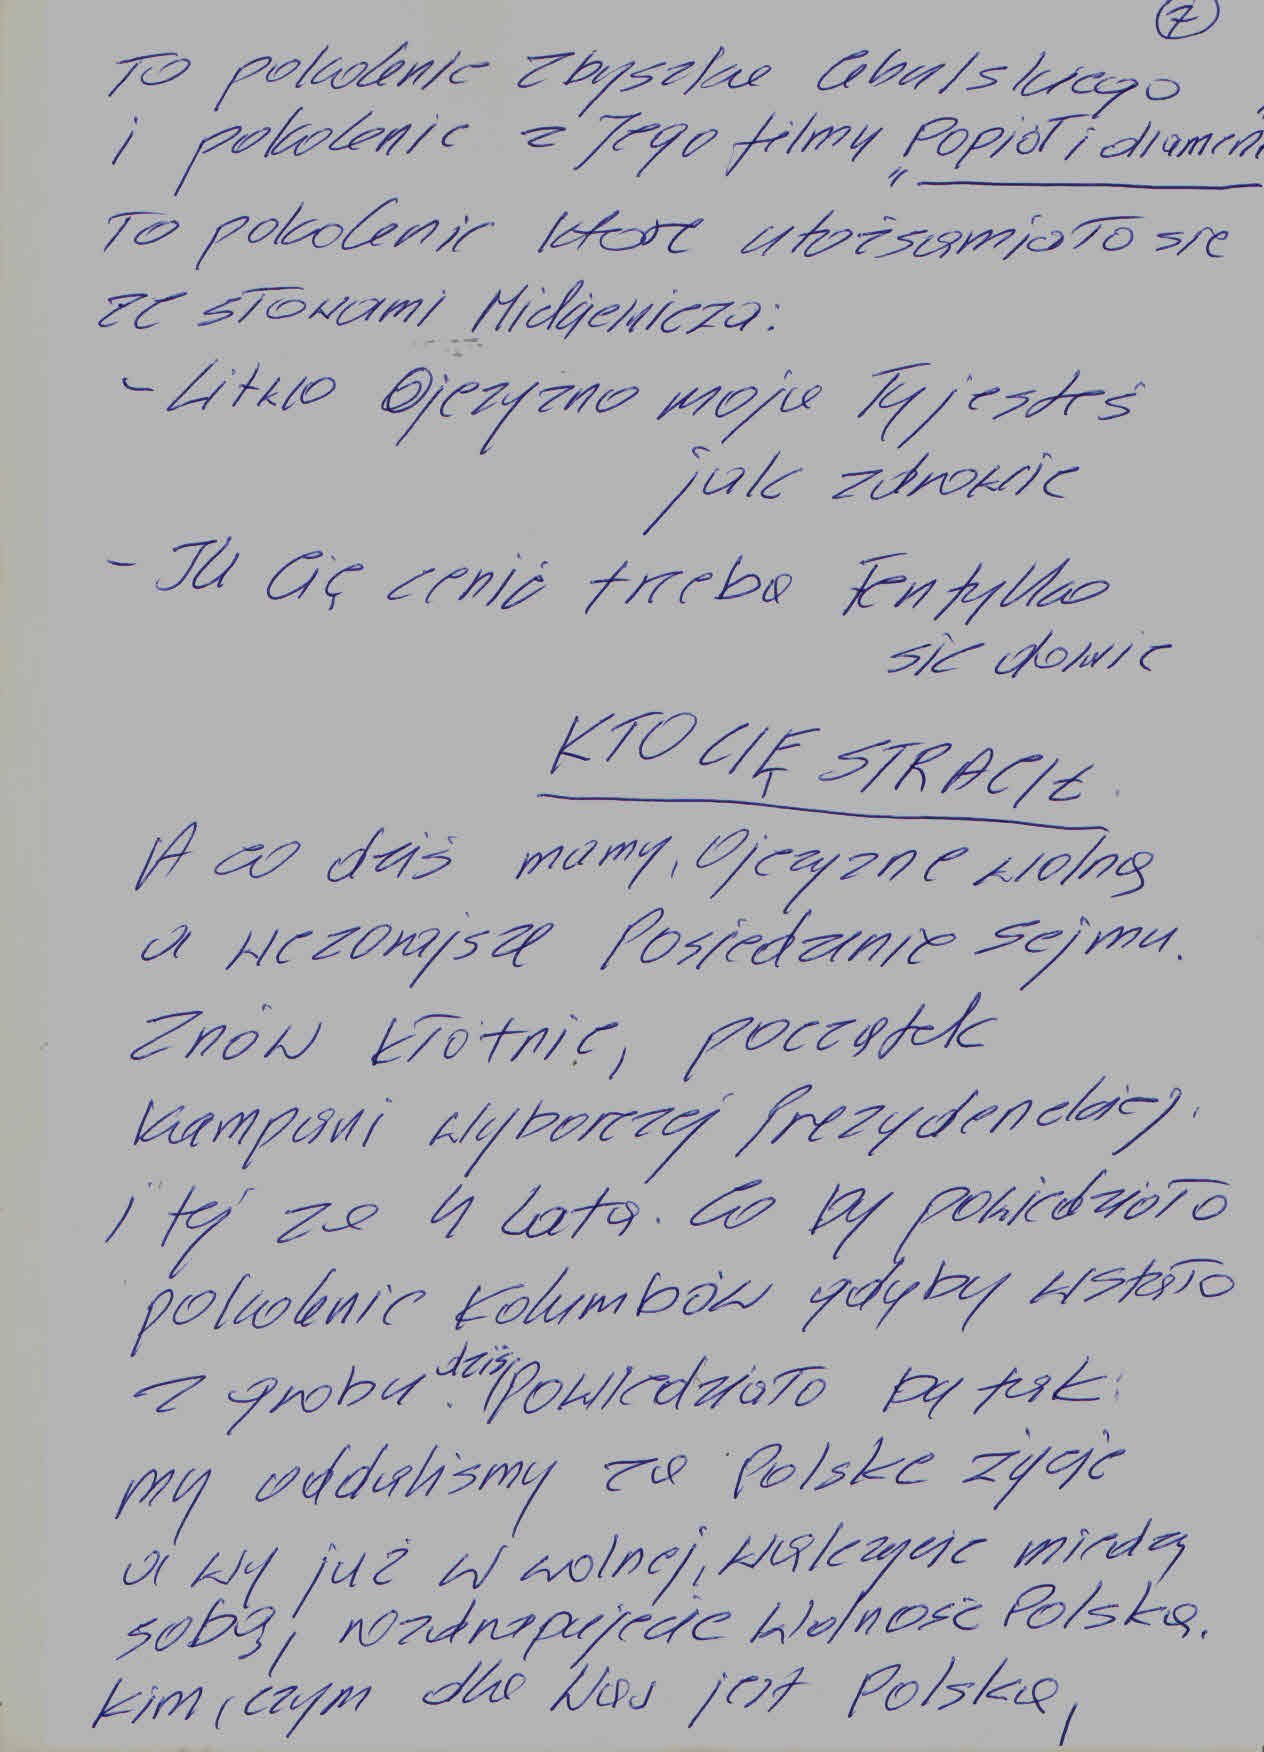 7
To pokolenie Zbyszka Cebulskiego
i pokolenie z Jego filmy „Popiół i diament
To pokolenie które utożsamiało sie
ze słowami Mickiewicza:
- Litwo Ojczyzno moja Ty jesteś
jak zdrowie
- Ile Cię cenić trzeba Ten tylko
sie dowie
KTO CIĘ STRACIŁ.
A co dziś mamy, Ojczyzne wolną
a wczorajsze Posiedzenie Sejmu.
Znów kłótnie, początek
kampani wyborczej Prezydenckiej.
i tej za 4 Lata. Co by powiedziało
pokolenie Kolumbów gdyby wstało
z grobu dziś. Powiedziało by tak:
my oddalismy za Polske życie
a wy już w wolnej, walczycie miedzy
sobą, rozdrapujecie Wolność Polską.
kim, czym dla Was jest Polska,